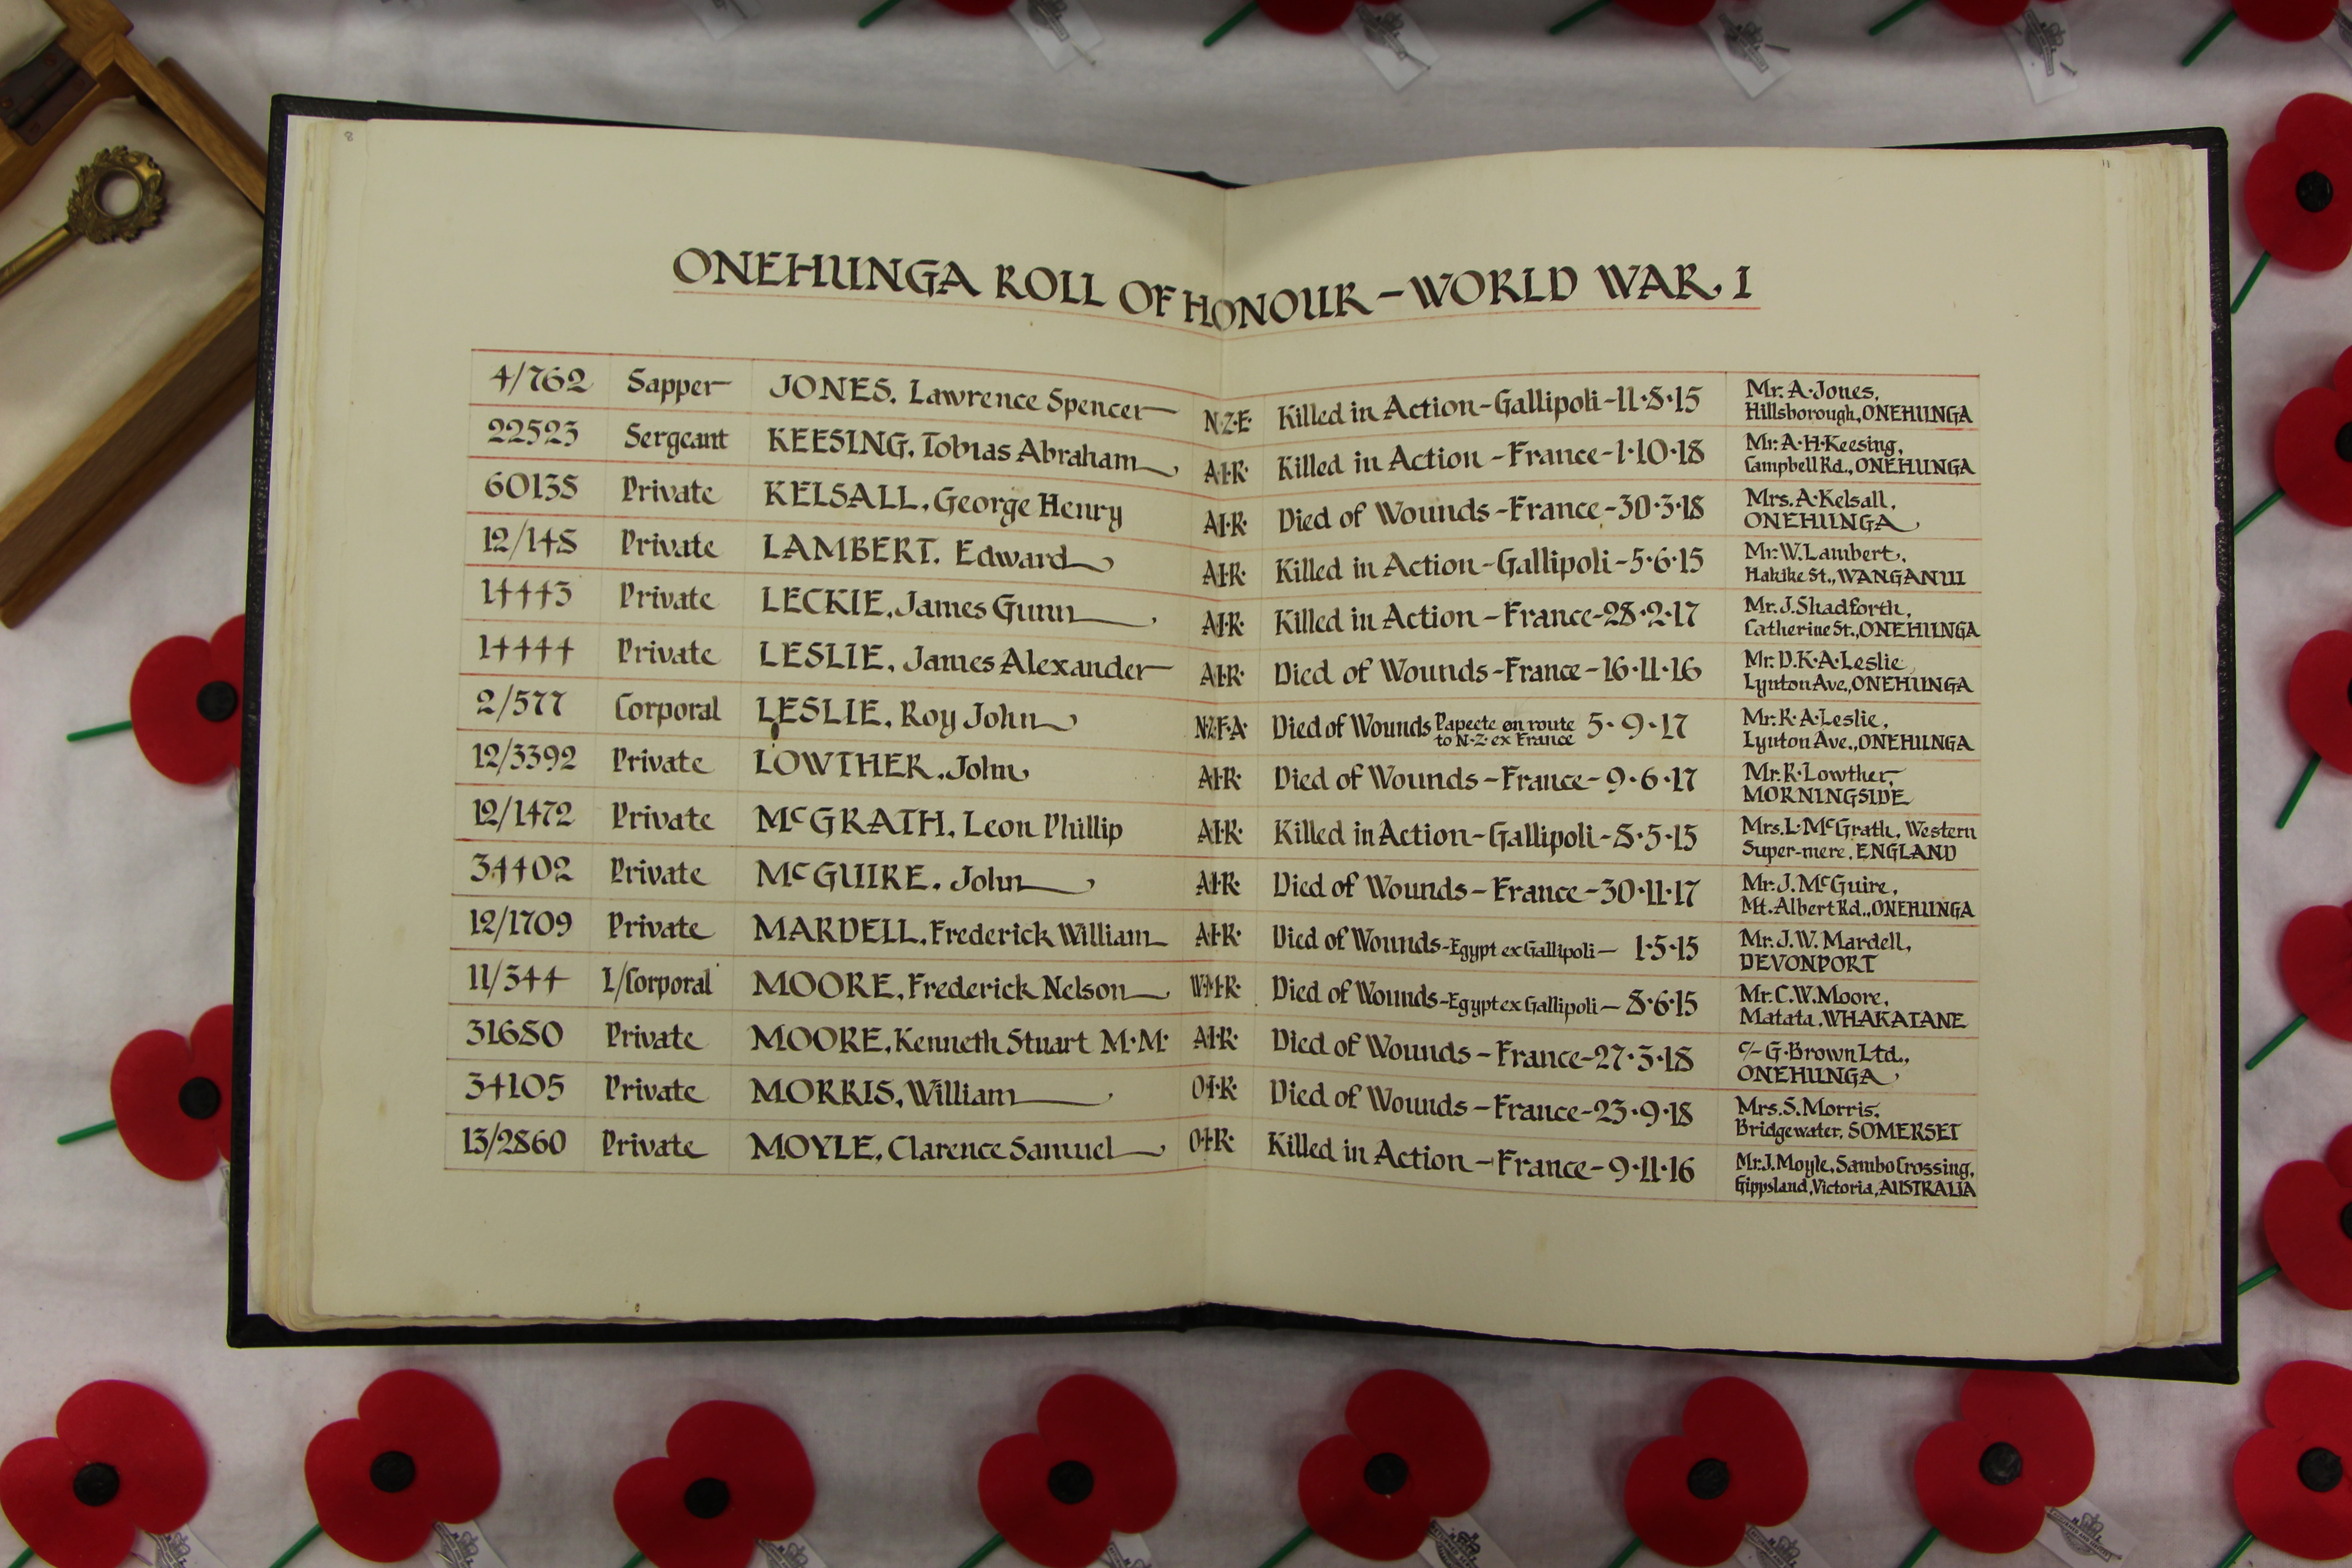 8
11
ONEHUNGA ROLL OF HONOUR - WORLD WAR, I
4/762 Sapper JONES, Lawrence Spencer N·Z·E· Killed in Action - Gallipoli - 11·8·15 Mr. A. Jones,
Hillsborough, ONEHUNGA
22523 Sergeant KEESING, Tobias Abraham A·I·R· Killed in Action - France - 1·10·18 Mr. A·H·Keesing,
Campbell Rd., ONEHUNGA
60138 Private KELSALL, George Henry A·I·R· Died of Wounds - France - 30·3·18 Mrs. A·Kelsall,
ONEHUNGA
12/148 Private LAMBERT, Edward A·I·R· Killed in Action - Gallipoli - 5·6·15 Mr. W. Lambert,
St., WANGANUI
14443 Private LECKIE, James Gunn A·I·R· Killed in Action - France - 28·2·17 Mr. J. Shadforth,
Catherine St., ONEHUNGA
14444 Private LESLIE, James Alexander A·I·R· Died of Wounds - France - 16·11·16 Mr. D.K·A·Leslie
Lynton Ave., ONEHUNGA
2/577 Corporal LESLIE, Roy John N·Z·F·A· Died of Wounds Papeete on route to N·Z· ex France 5·9·17 Mr. R·A·Leslie,
Lynton Ave., ONEHUNGA
12/3392 Private LOWTHER, John A·I·R· Died of Wounds - France - 9·6·17 Mr. R·Lowther,
MORNINGSIDE
12/1472 Private McGRATH, Leon Phillip A·I·R· Killed in Action - Gallipoli - 8·5·15 Mrs. L·McGrath, Western
Super-mere, ENGLAND
34402 Private McGUIRE, John A·I·R· Died of Wounds - France - 30·11·17 Mr. J. McGuire,
Mt. Albert Rd., ONEHUNGA
12/1709 Private MARDELL, Frederick William A·I·R· Died of Wounds - Egypt ex Gallipoli - 1·5·15 Mr. J.W. Mardell,
DEVONPORT
11/344 L/Corporal MOORE, Frederick Nelson W·M·R· Died of Wounds - Egypt ex Gallipoli - 8·6·15 Mr. C.W. Moore,
Matata, WHAKATANE
31680 Private MOORE, Kenneth Stuart M·M· A·I·R· Died of Wounds - France - 27·3·18 c/- G·Brown Ltd.,
ONEHUNGA
34105 Private MORRIS, William O·I·R· Died of Wounds - France - 23·9·18 Mrs. S. Morris,
Bridgewater, SOMERSET
13/2860 Private MOYLE, Clarence Samuel O·I·R· Killed in Action - France - 9·11·16 Mr. J. Moyle, Sambo Crossing,
Gippsland, Victoria, AUSTRALIA